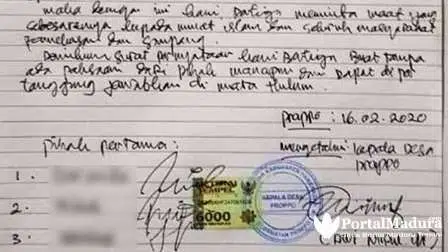 maka dengan ini kami bertiga meminta maaf yang
sebesarnya kepada umat islam dan seluruh masyarakat
Pamekasan dan Sampang.
Demikian surat pernyataan kami bertiga buat tanpa
ada paksaan dari pihak manapun dan dapat di per
tanggung jawabkan di mata hukum.
proppo: 16.02.2020
pihak pertama:
mengetahui kepala desa
proppo
1.
2.
3
TEMPEL
6000
KEPALA DESA
PROPPO
PortalMadura